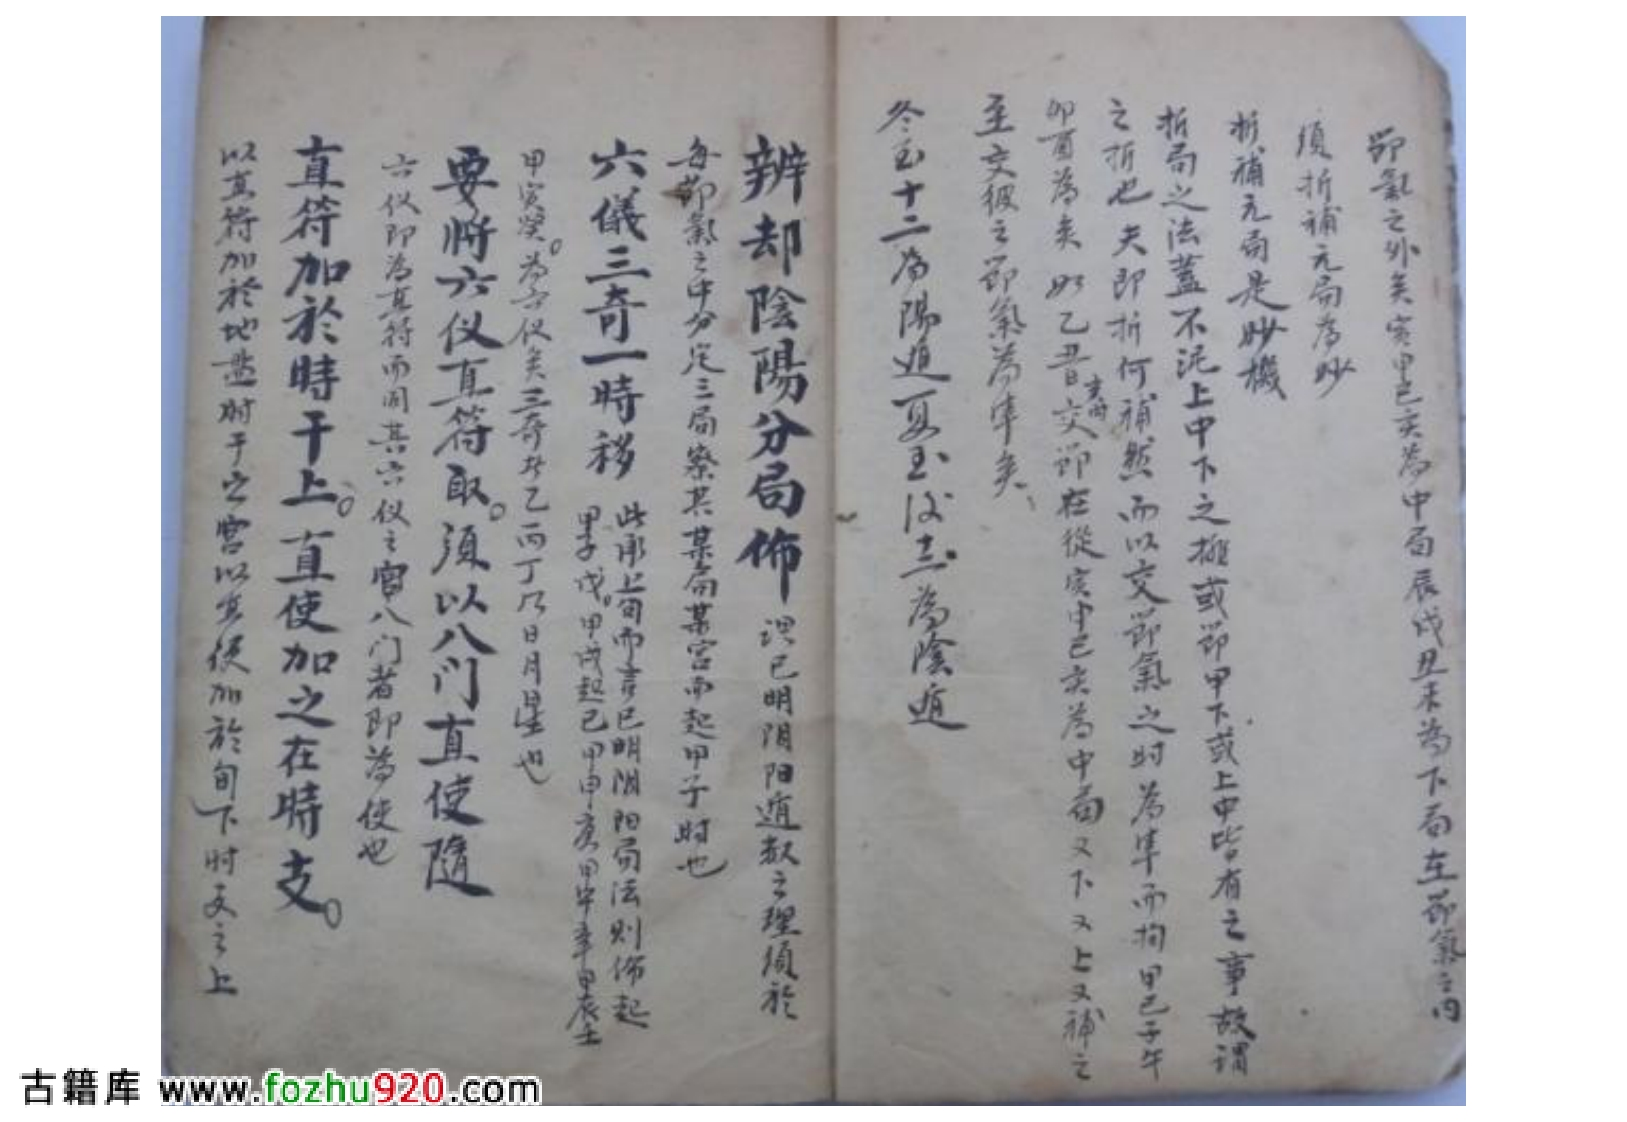 節氣之外矣寅申巳亥為中局辰戌丑未為下局在節氣之內
須折補元局為妙
折補元局是妙機
折局之法蓋不泥上中下之擁或節甲下或上中皆有之事故謂
之折也夫即折何補然而以交節氣之时為準而拘甲己子午
卯酉為矣如乙丑日交節在從寅申巳亥為中局又下又上又補之
至交級之節氣為準矣
冬至十二為陽遁夏至後十二為陰遁
辨却陰陽分局佈
既已明阴阳遁数之理須於
每節氣之中分定三局察其某局某宮而起甲子时也
六儀三奇一時移
此承上旬而言已明阴阳局法则佈起
甲子戊甲戌起己甲申庚甲午辛甲辰壬
甲寅癸為六仪矣三奇者乙丙丁乃日月星也
要將六仪直符取須以八门直使隨
六仪即為直符而同其六仪之宮八门者即為使也
直符加於時干上直使加之在時支
以直符加於地盘时干之宮以直使加於旬下时支之上
古籍库 www.fozhu920.com